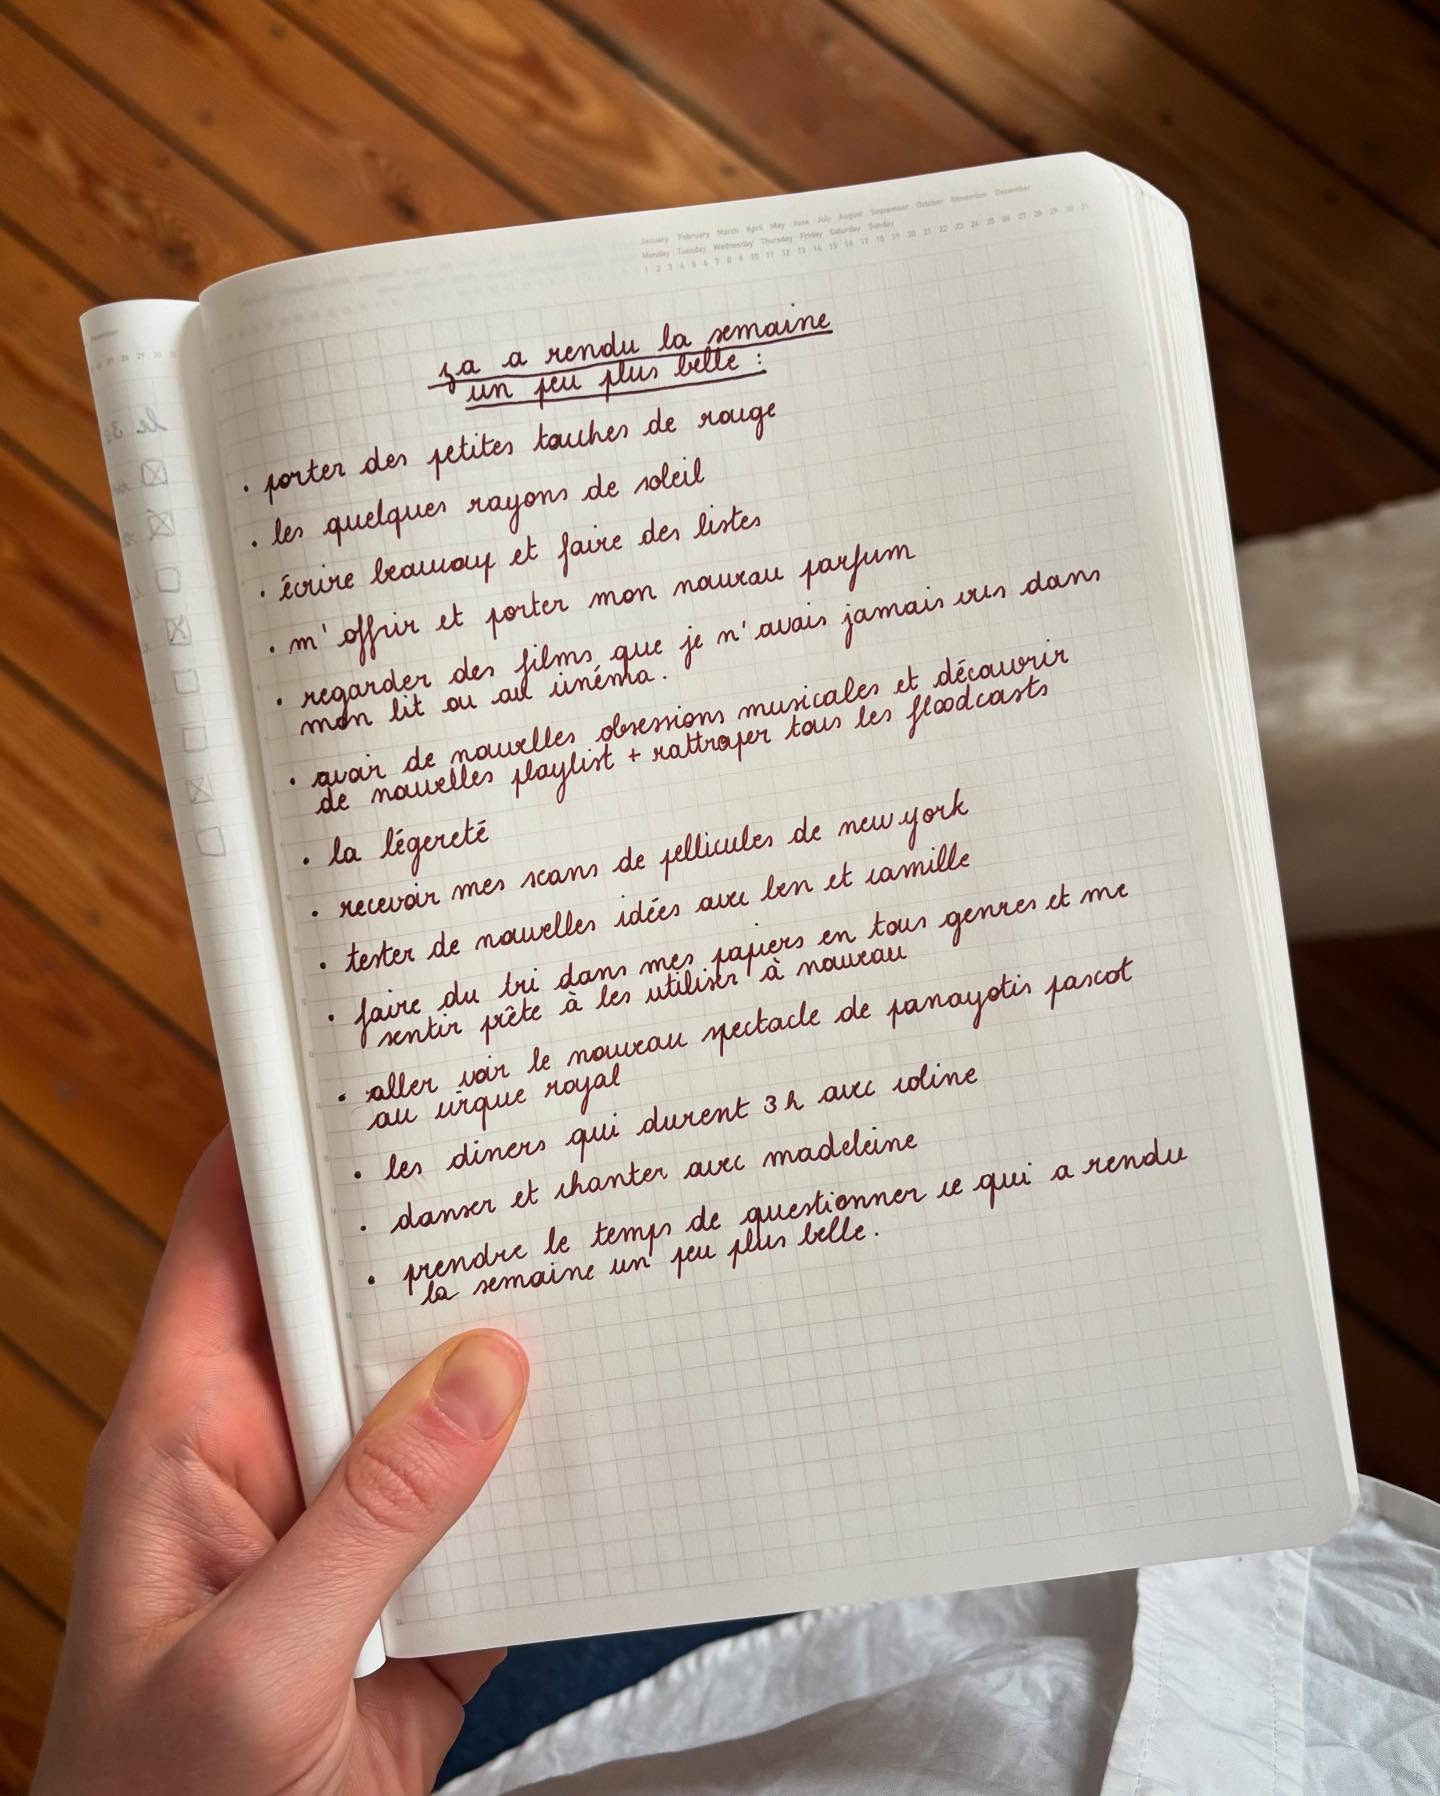 January February March April May June July August September October November December
Monday Tuesday Wednesday Thursday Friday Saturday Sunday
1 2 3 4 5 6 7 8 9 10 11 12 13 14 15 16 17 18 19 20 21 22 23 24 25 26 27 28 29 30 31
ça a rendu la semaine
un peu plus belle :
· porter des petites touches de rouge
· les quelques rayons de soleil
· écrire beaucoup et faire des listes
· m'offrir et porter mon nouveau parfum
· regarder des films que je n'avais jamais vus dans
mon lit ou au cinéma.
· avoir de nouvelles obsessions musicales et découvrir
de nouvelles playlist + rattraper tous les floodcasts
· la légereté
· recevoir mes scans de pellicules de new york
· tester de nouvelles idées avec ben et camille
· faire du tri dans mes papiers en tous genres et me
sentir prête à les utiliser à nouveau
· aller voir le nouveau spectacle de panayotis pascot
au cirque royal
· les diners qui durent 3h avec coline
· danser et chanter avec madeleine
· prendre le temps de questionner ce qui a rendu
la semaine un peu plus belle.